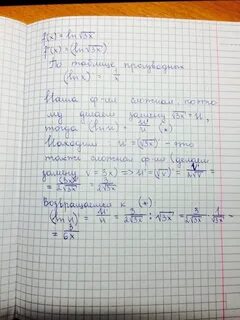 f(x) = ln √3x
f'(x) = (ln √3x)
По таблице производных
(ln x) = 1/x
Наша ф-ция сложная, поэто
му делаем замену √3x = u,
тогда (ln u) = u'/u (*)
Находим: u' = (√3x) - это
также сложная ф-ция (делаем
замену v = 3x) => u' = (√v)' = v'/2√v =
= (3x)'/2√3x = 3/2√3x
Возвращаемся к (*)
(ln u)' = u'/u = 3/2√3x : √3x = 3/2√3x · 1/√3x =
= 3/6x